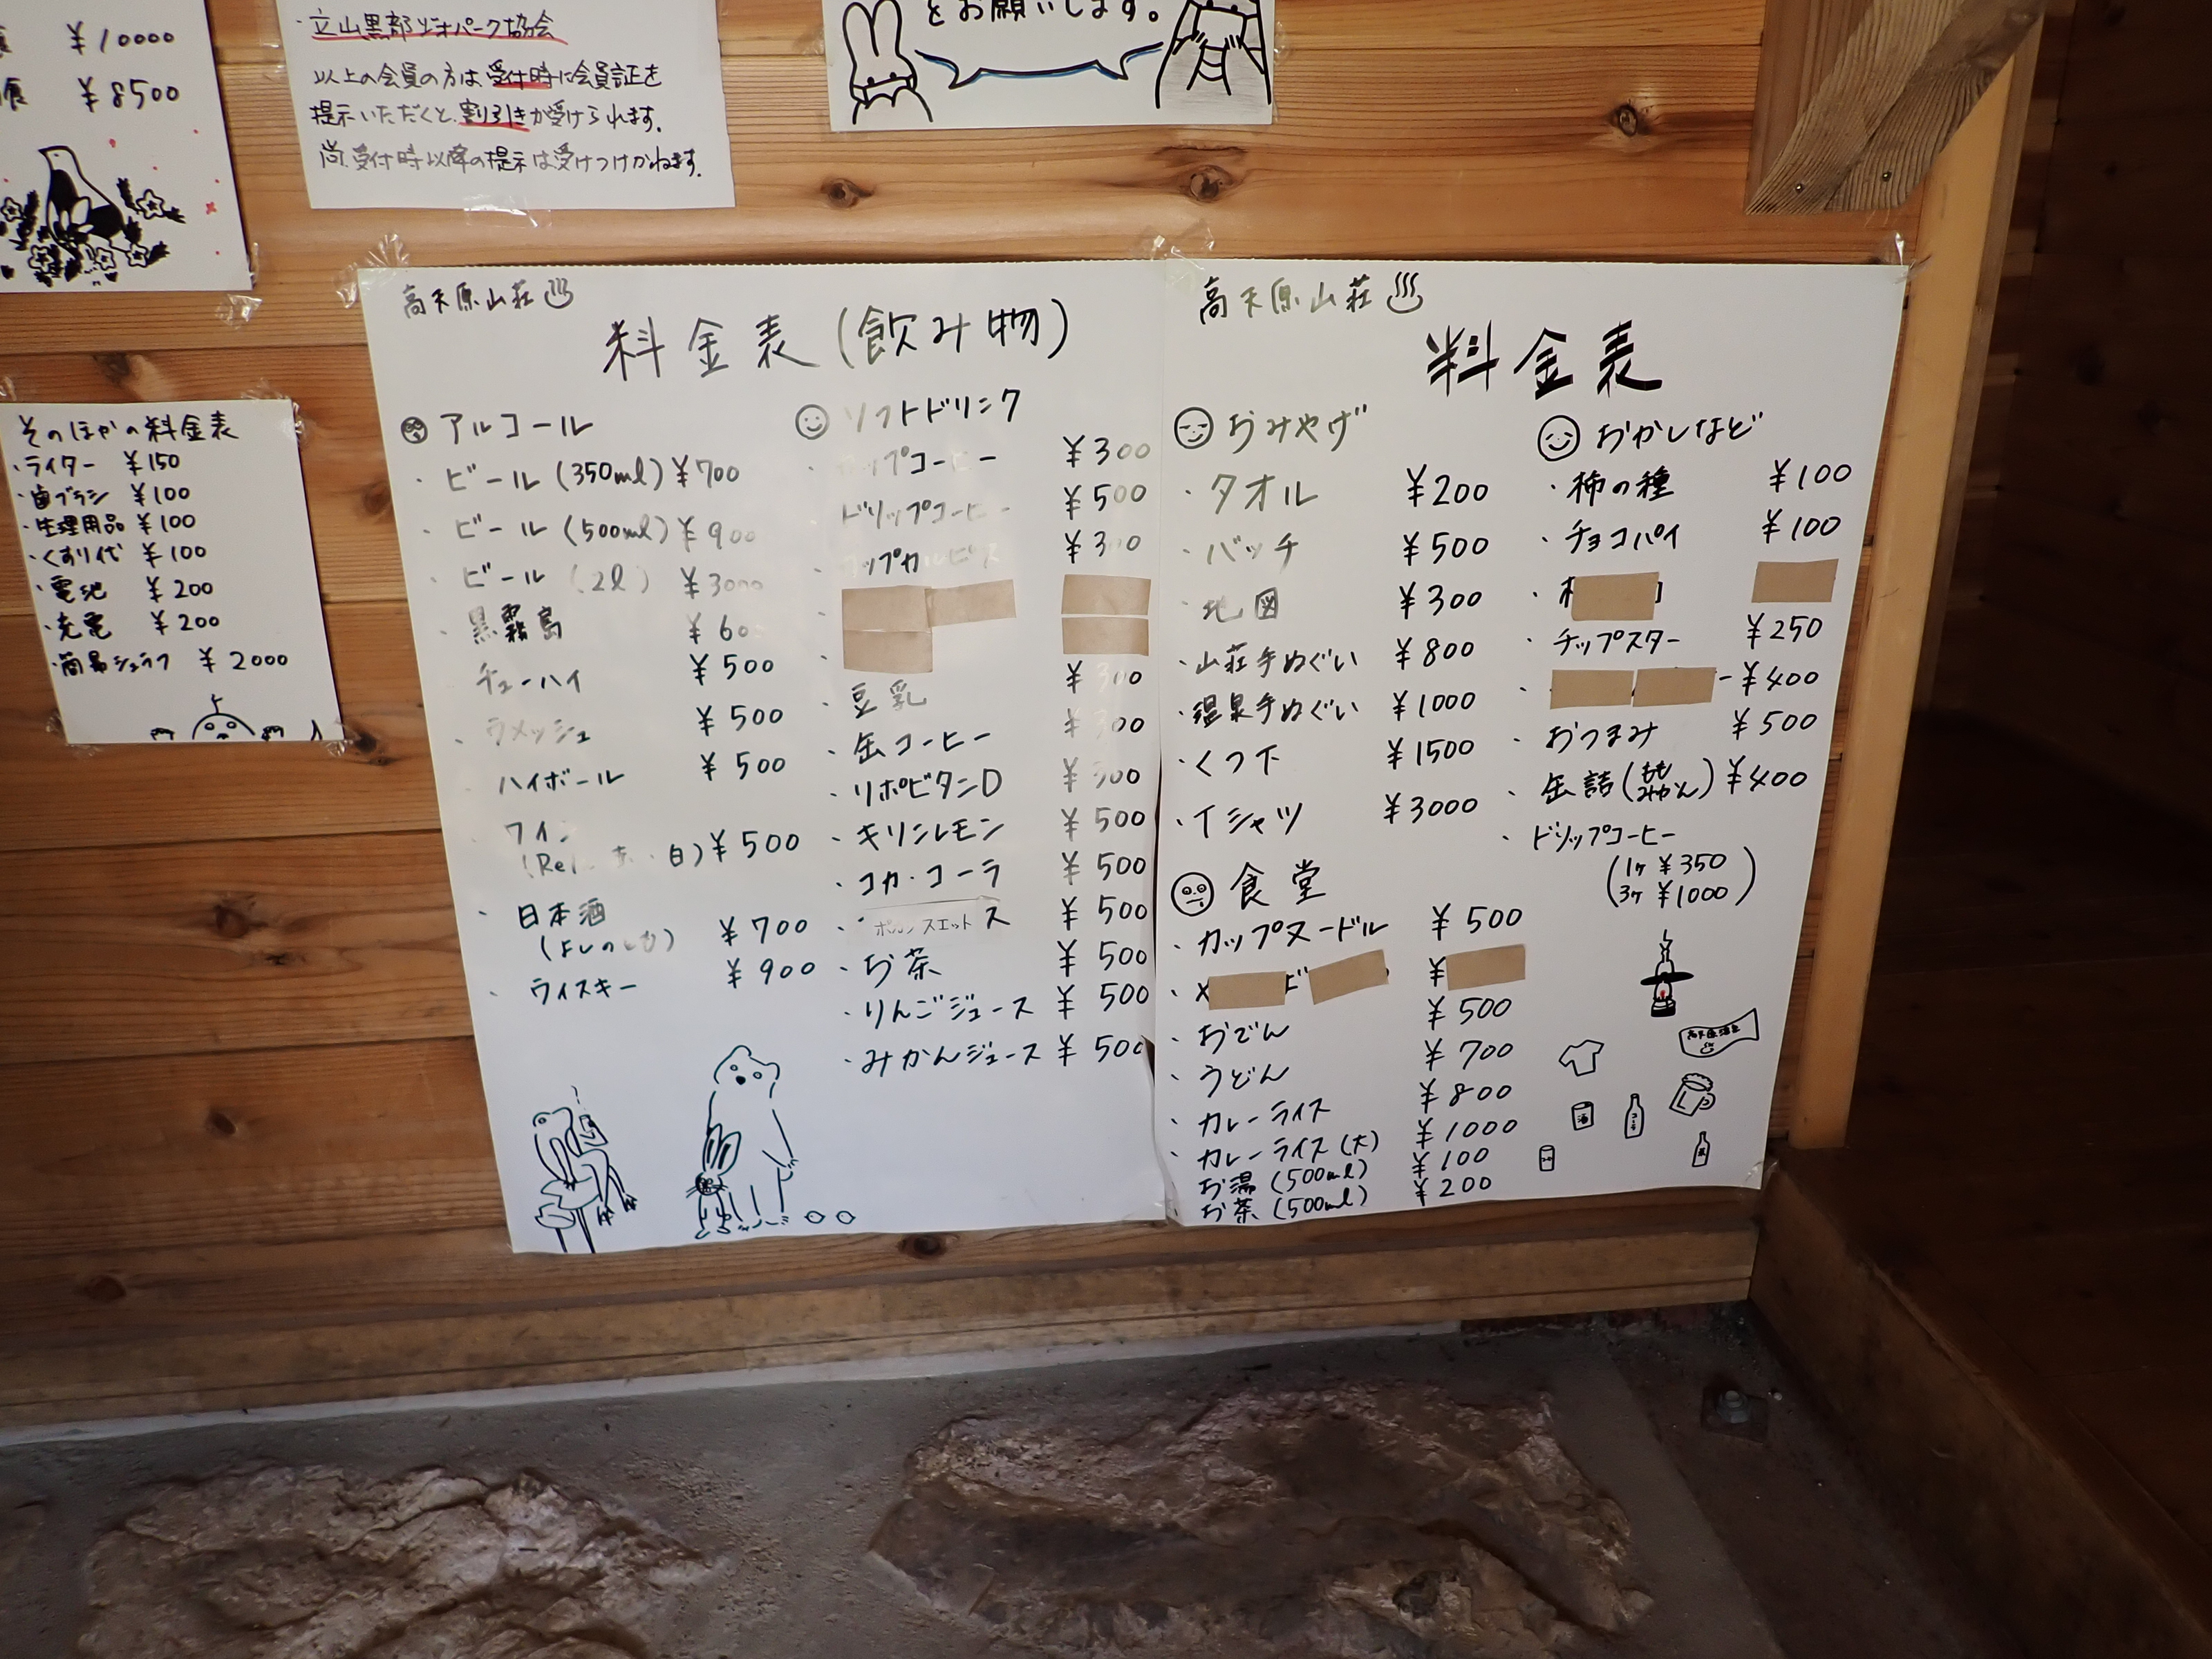 ¥10000
¥8500
・立山黒部ジオパーク協会
以上の会員の方は、受付時に会員証を
提示いただくと、割り引きが受けられます。
尚、受付時以降の提示は受けつけかねます。
をお願いします。
そのほかの料金表
・ライター ¥150
・歯ブラシ ¥100
・生理用品 ¥100
・くすり代 ¥100
・電池 ¥200
・充電 ¥200
・簡易シュラフ ¥2000
高天原山荘♨
料金表(飲み物)
アルコール
・ビール(350ml) ¥700
・ビール(500ml) ¥900
・ビール(2l) ¥3000
・黒霧島 ¥600
チューハイ ¥500
・ラメッシュ ¥500
ハイボール ¥500
ワイン
(赤・白) ¥500
・日本酒 ¥700
・ウイスキー ¥900
ソフトドリンク
・カップコーヒー ¥300
ドリップコーヒー ¥500
・カップカルピス ¥300
・豆乳 ¥300
・缶コーヒー ¥300
・リポビタンD ¥300
・キリンレモン ¥500
・コカ・コーラ ¥500
・ポカリスエット ス ¥500
・お茶 ¥500
・りんごジュース ¥500
・みかんジュース ¥500
高天原山荘♨
料金表
おみやげ
・タオル ¥200
・バッチ ¥500
・地図 ¥300
・山荘手ぬぐい ¥800
・温泉手ぬぐい ¥1000
・くつ下 ¥1500
・Tシャツ ¥3000
食堂
・カップヌードル ¥500
・ ¥
・おでん ¥500
・うどん ¥700
・カレーライス ¥800
・カレーライス(大) ¥1000
お湯(500ml) ¥100
・お茶(500ml) ¥200
おかしなど
・柿の種 ¥100
・チョコパイ ¥100
・チップスター ¥250
・ ー ¥400
・おつまみ ¥500
・缶詰(もも みかん) ¥400
・ドリップコーヒー
(1ヶ ¥350
3ヶ ¥1000)
酒